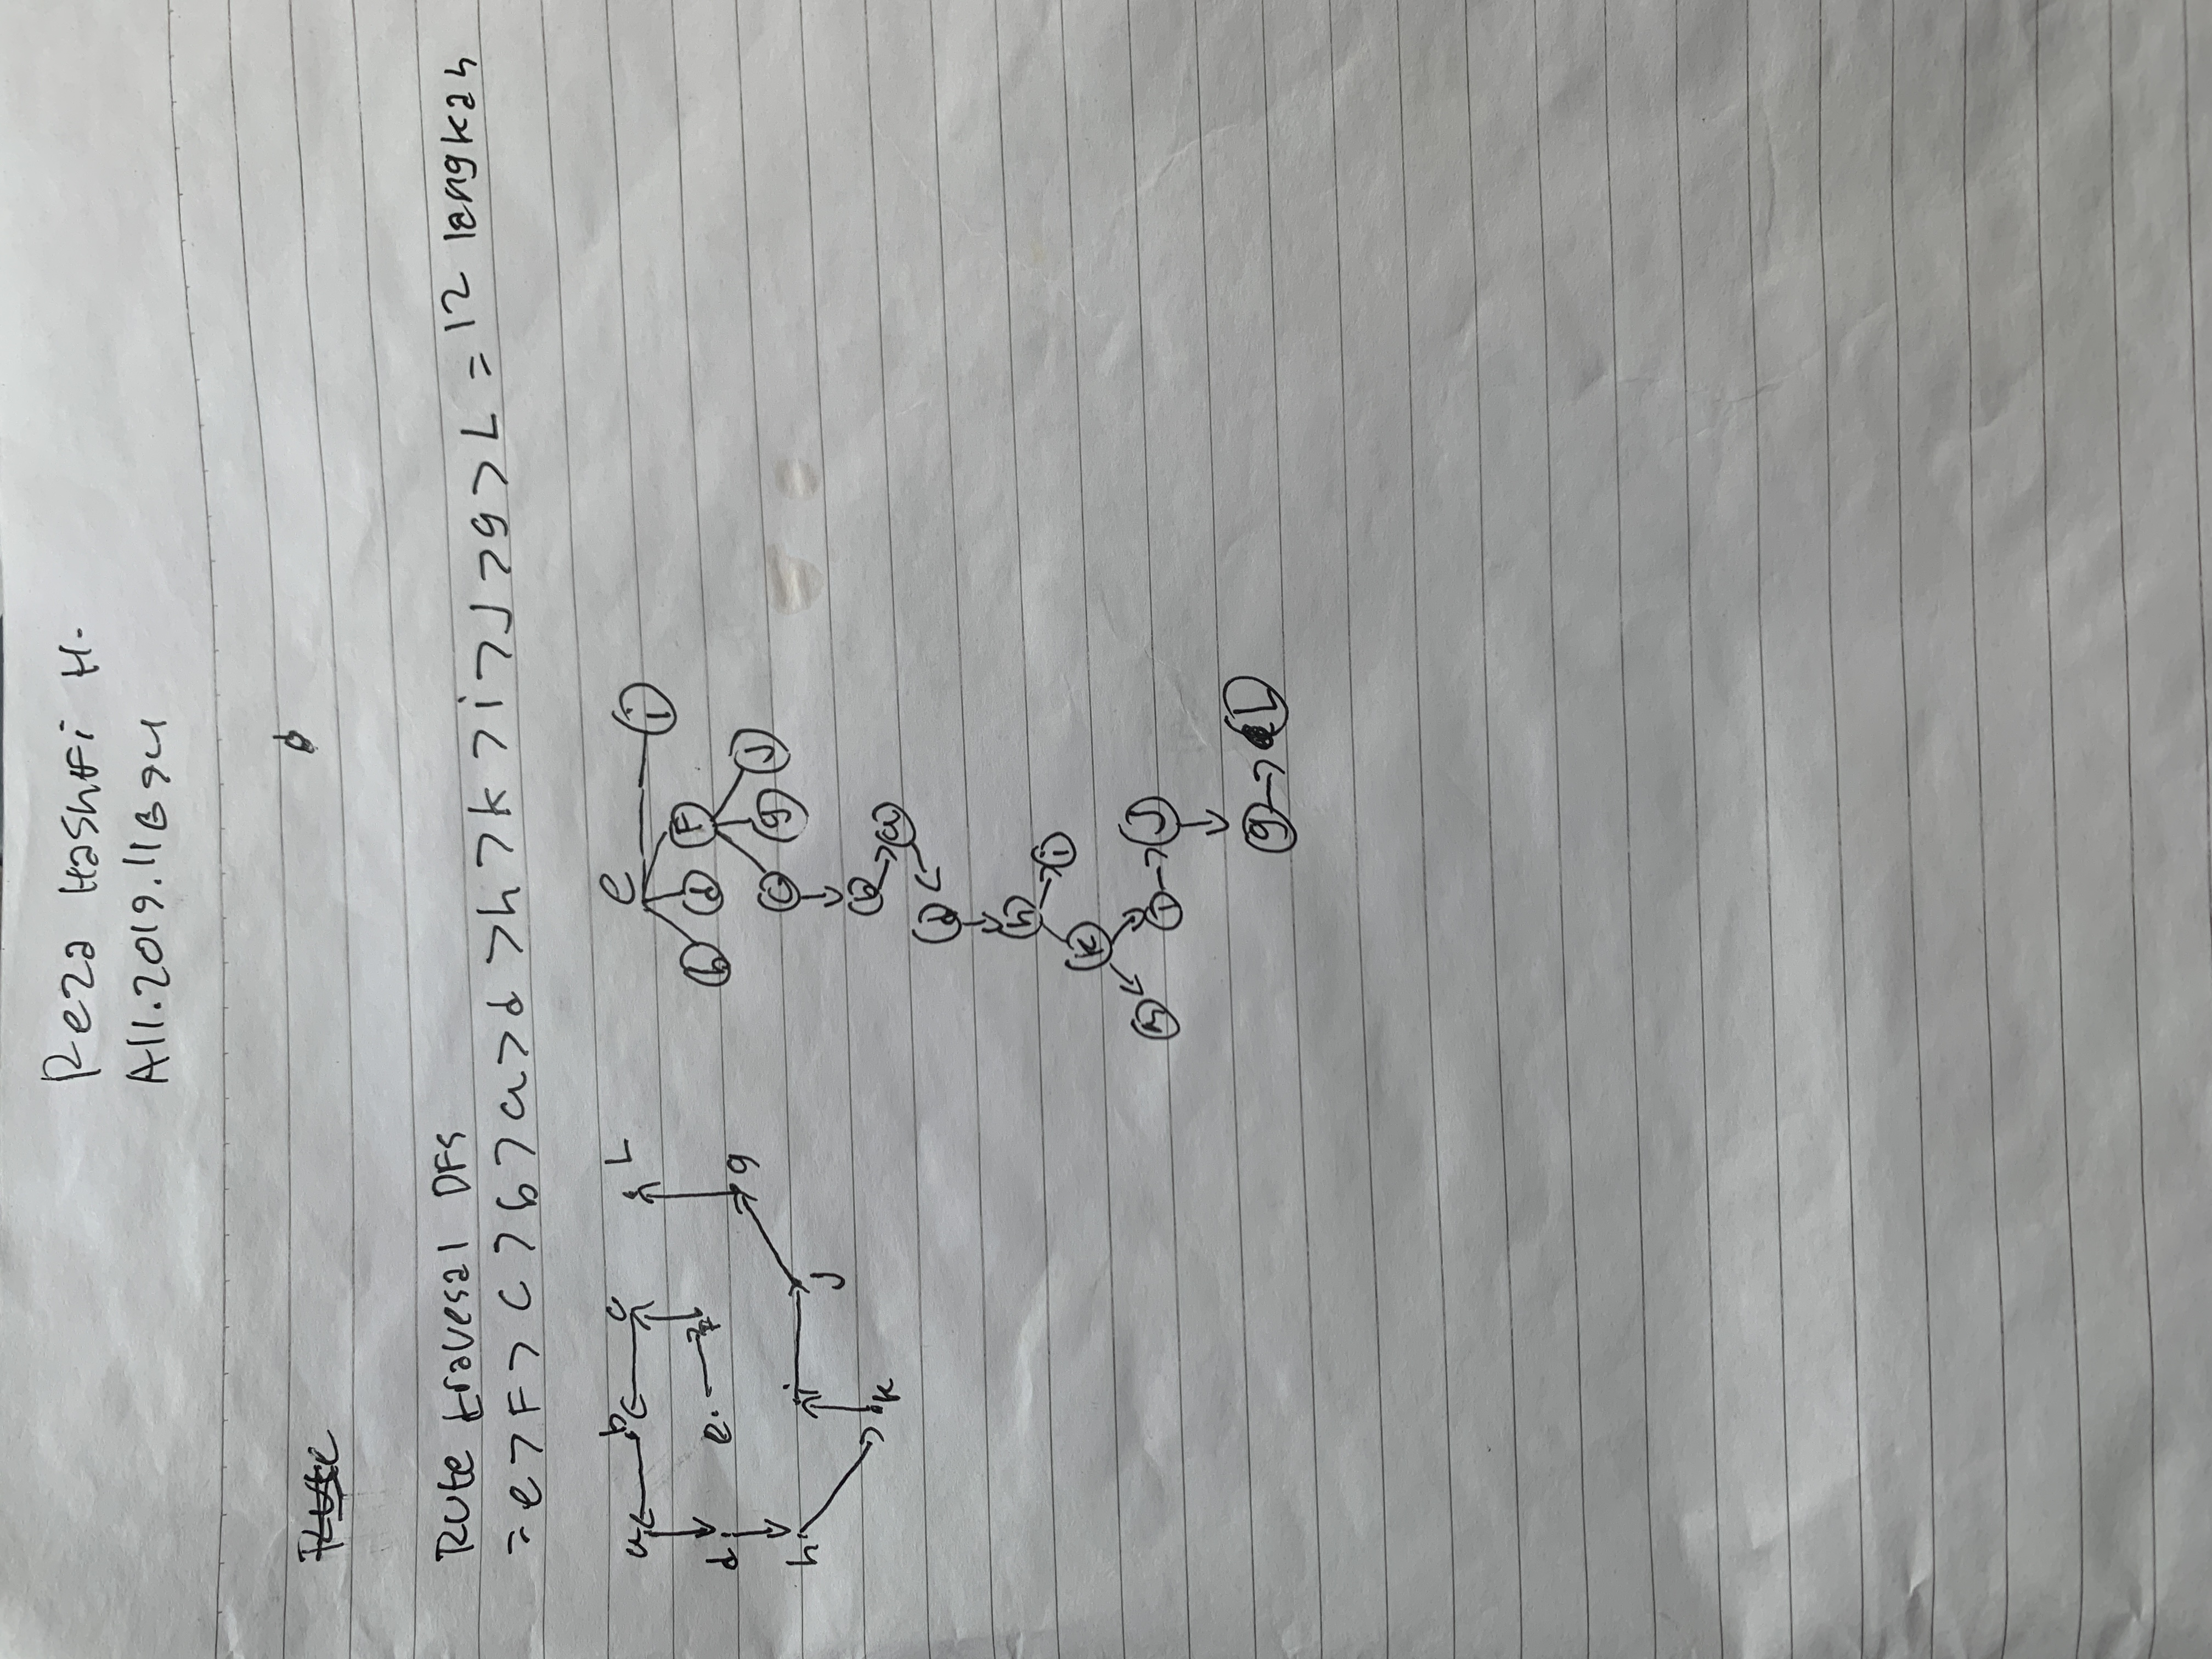 Reza Hashfi H.
A11.2019.11694
Rute
Rute travesal DFS
= e > F > c > b > a > d > h > k > i > J > g > L = 12 langkah
a b c L
d e. F g
h i J
k
e
b d F i
c g J
b
a
d
h
i
k
h i J
g L